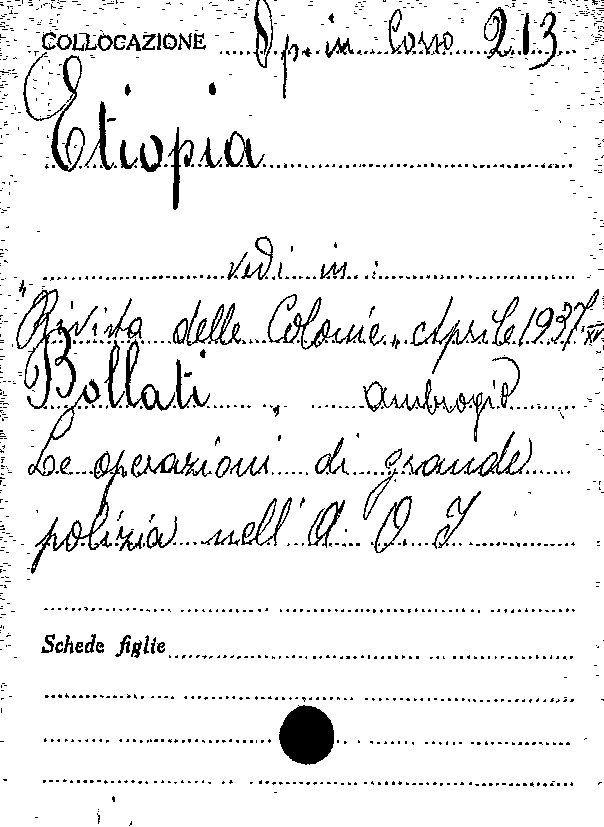 COLLOCAZIONE Op. in Corso 213
Etiopia
vedi in:
"Rivista delle Colonie„ Aprile 1937. XV
Bollati, Ambrogio
Le operazioni di grande
polizia nell'A. O. I
Schede figlie